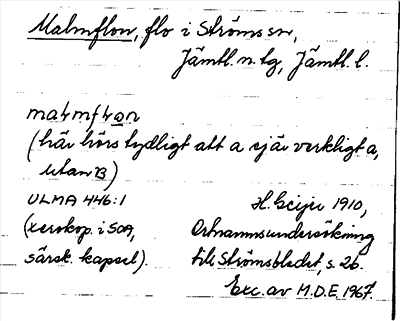 Malmflon, flo i Ströms sn,
Jämtl. n. tg, Jämtl. l.
(här hörs tydligt att a är verkligt a,
utan B)
ULMA 446:1 H. Geijer 1910,
(xerokop. i SOA, Ortnamnsundersökning
särsk. kapsel). till Strömsbladet, s. 26.
Exc. av M.D.E. 1967.